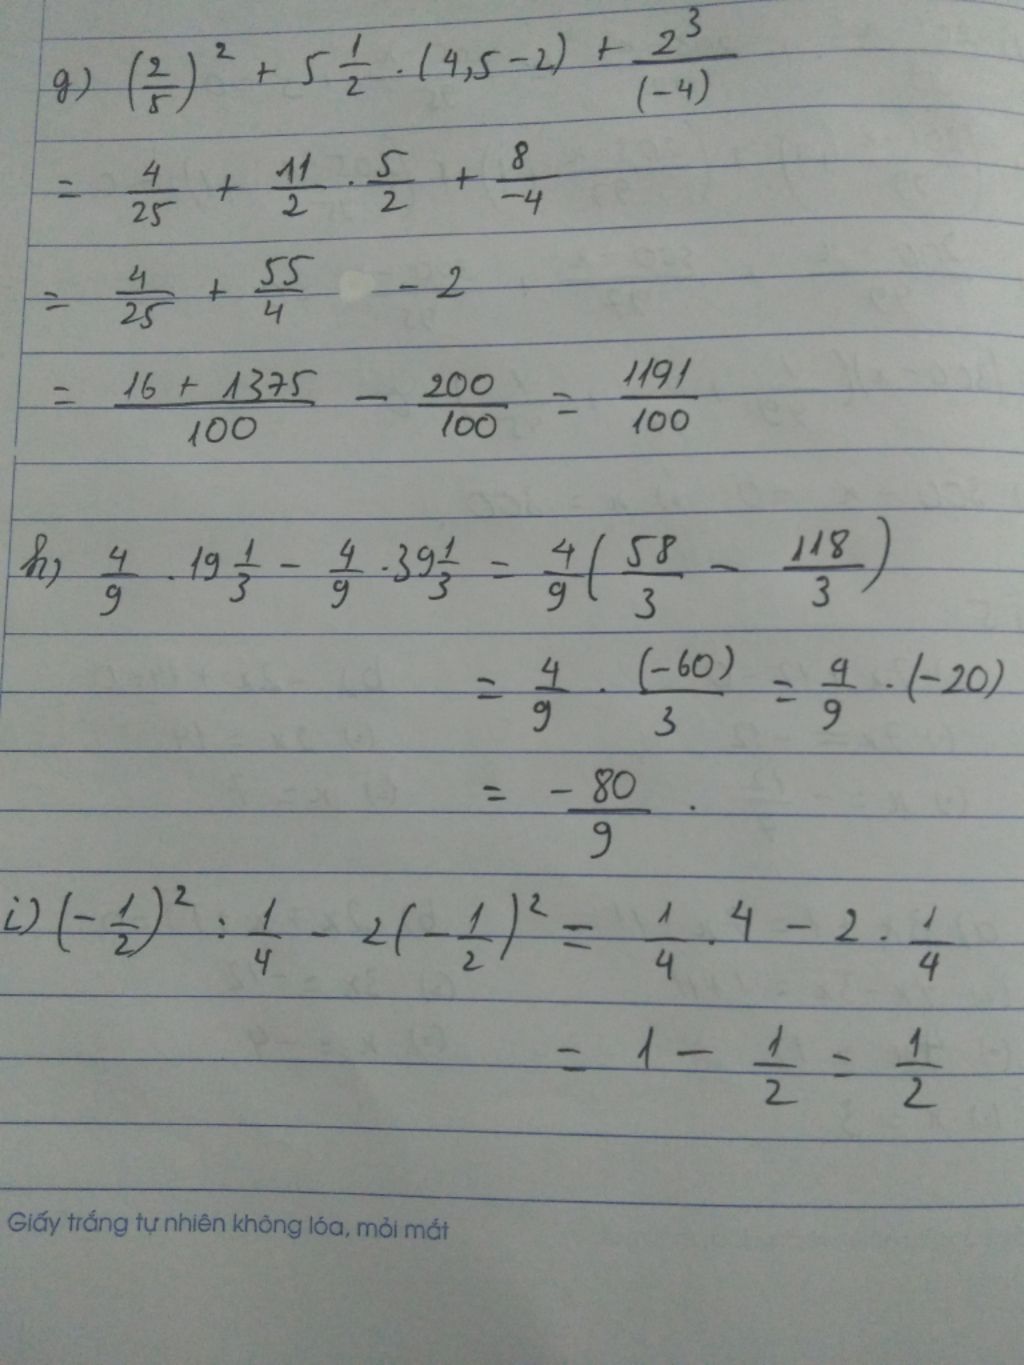 g) (2/5)² + 5 1/2 . (4,5 - 2) + 2³/(-4)
= 4/25 + 11/2 . 5/2 + 8/-4
= 4/25 + 55/4 - 2
= (16 + 1375)/100 - 200/100 = 1191/100
h) 4/9 . 19 1/3 - 4/9 . 39 1/3 = 4/9 (58/3 - 118/3)
= 4/9 . (-60)/3 = 4/9 . (-20)
= -80/9 .
i) (-1/2)² : 1/4 - 2(-1/2)² = 1/4 . 4 - 2 . 1/4
= 1 - 1/2 = 1/2
Giấy trắng tự nhiên không lóa, mỏi mắt